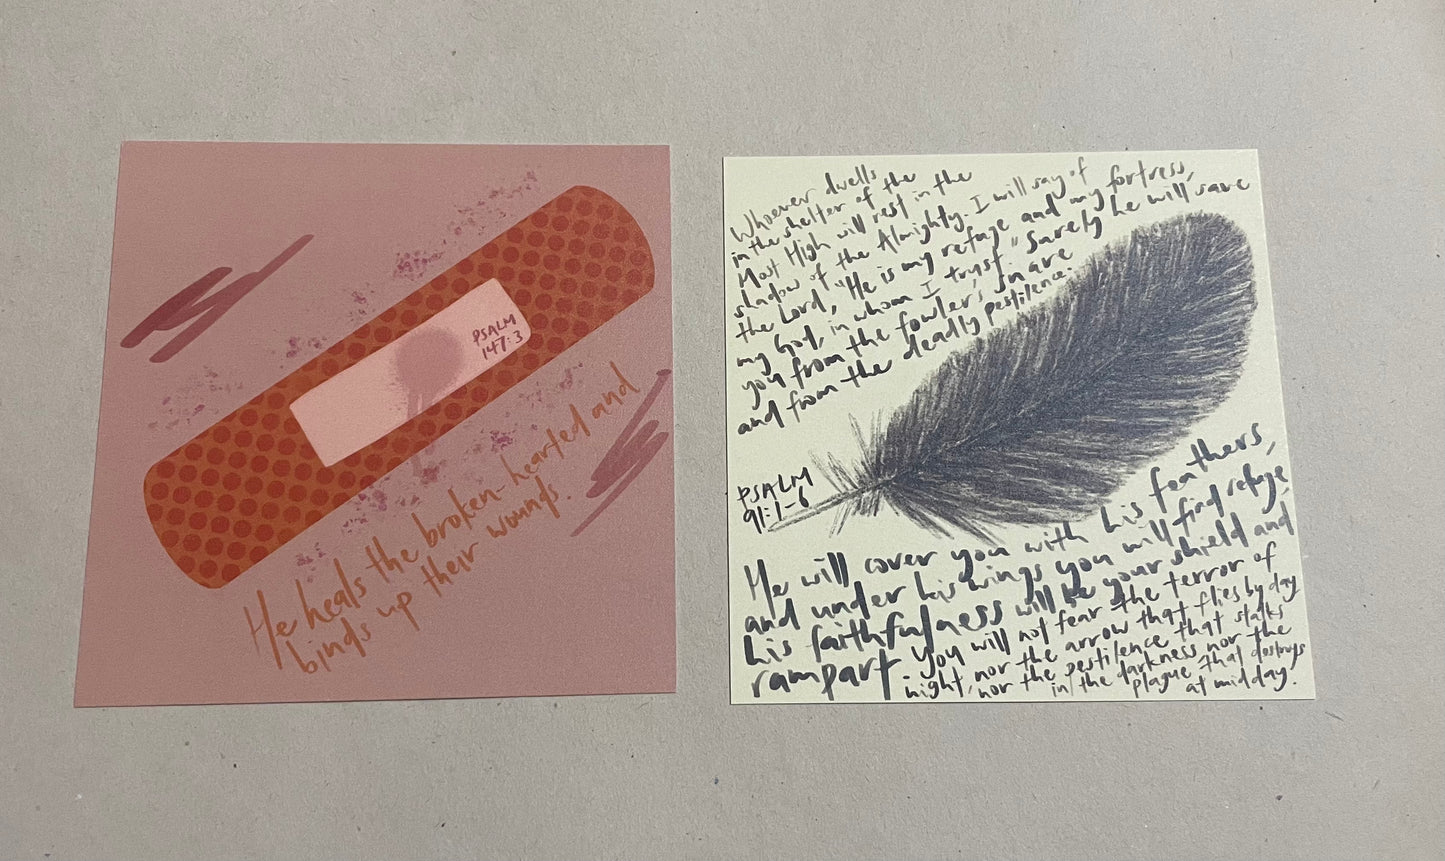 PSALM
147:3
He heals the broken-hearted and
binds up their wounds.
Whoever dwells
in the shelter of the
Most High will rest in the
shadow of the Almighty. I will say of
the Lord, "He is my refuge and my fortress,
my God, in whom I trust." Surely he will save
you from the fowler's snare
and from the deadly pestilence.
PSALM
91:1-6
He will cover you with his feathers,
and under his wings you will find refuge
his faithfulness will be your shield and
rampart. You will not fear the terror of
night, nor the arrow that flies by day
nor the pestilence that stalks
in the darkness, nor the
plague that destroys
at midday.